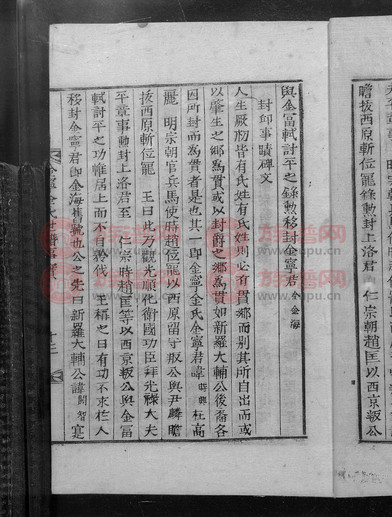 瞻拔西原斬位寵錄勲封上洛君 仁宗朝趙匡以西京叛公
與金富軾討平之錄勲移封金寧君 今金海
封卽事蹟碑文
人生厥初皆有氏姓有氏姓則必有貫鄉而別其所自出而或
以肇生之鄉為貫或以封爵之鄉為貫如新羅大輔公後裔各
因所封而為貫者是也其一卽金寧金氏金寧君諱 時興 杜高
麗 明宗朝官兵馬使時趙位寵以西原留守叛公與尹鱗瞻
拔西原斬位寵 王曰此乃勳光順化衛國功臣拜光祿大夫
平章事勳封上洛君至 仁宗時趙匡等以西京叛公與金富
軾討平之功惟居上而不自矜伐 王褒之曰有功不求在人
移封金寧君卽金海舊號也公之先曰新羅大輔公諱 閼智 寔
金寧金氏世譜
十三
族譜网
zupu.cn